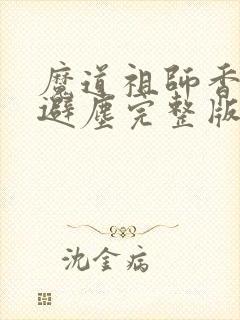 魔道祖師香
避塵完整版
沈金病